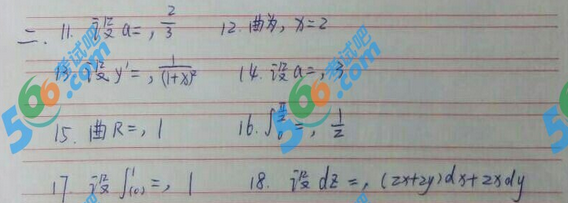 二、11. 设a=, 2/3 12. 曲为, x=2
13. 设y'=, 1/(1+x)² 14. 设a=, 3
15. 曲R=, 1 16. ∫₀^{π/2}=, 1/2
17. 设∫₍₀₎¹=, 1 18. 设dz=, (2x+2y)dx+2xdy
566考试吧
.com
566考试吧
.com